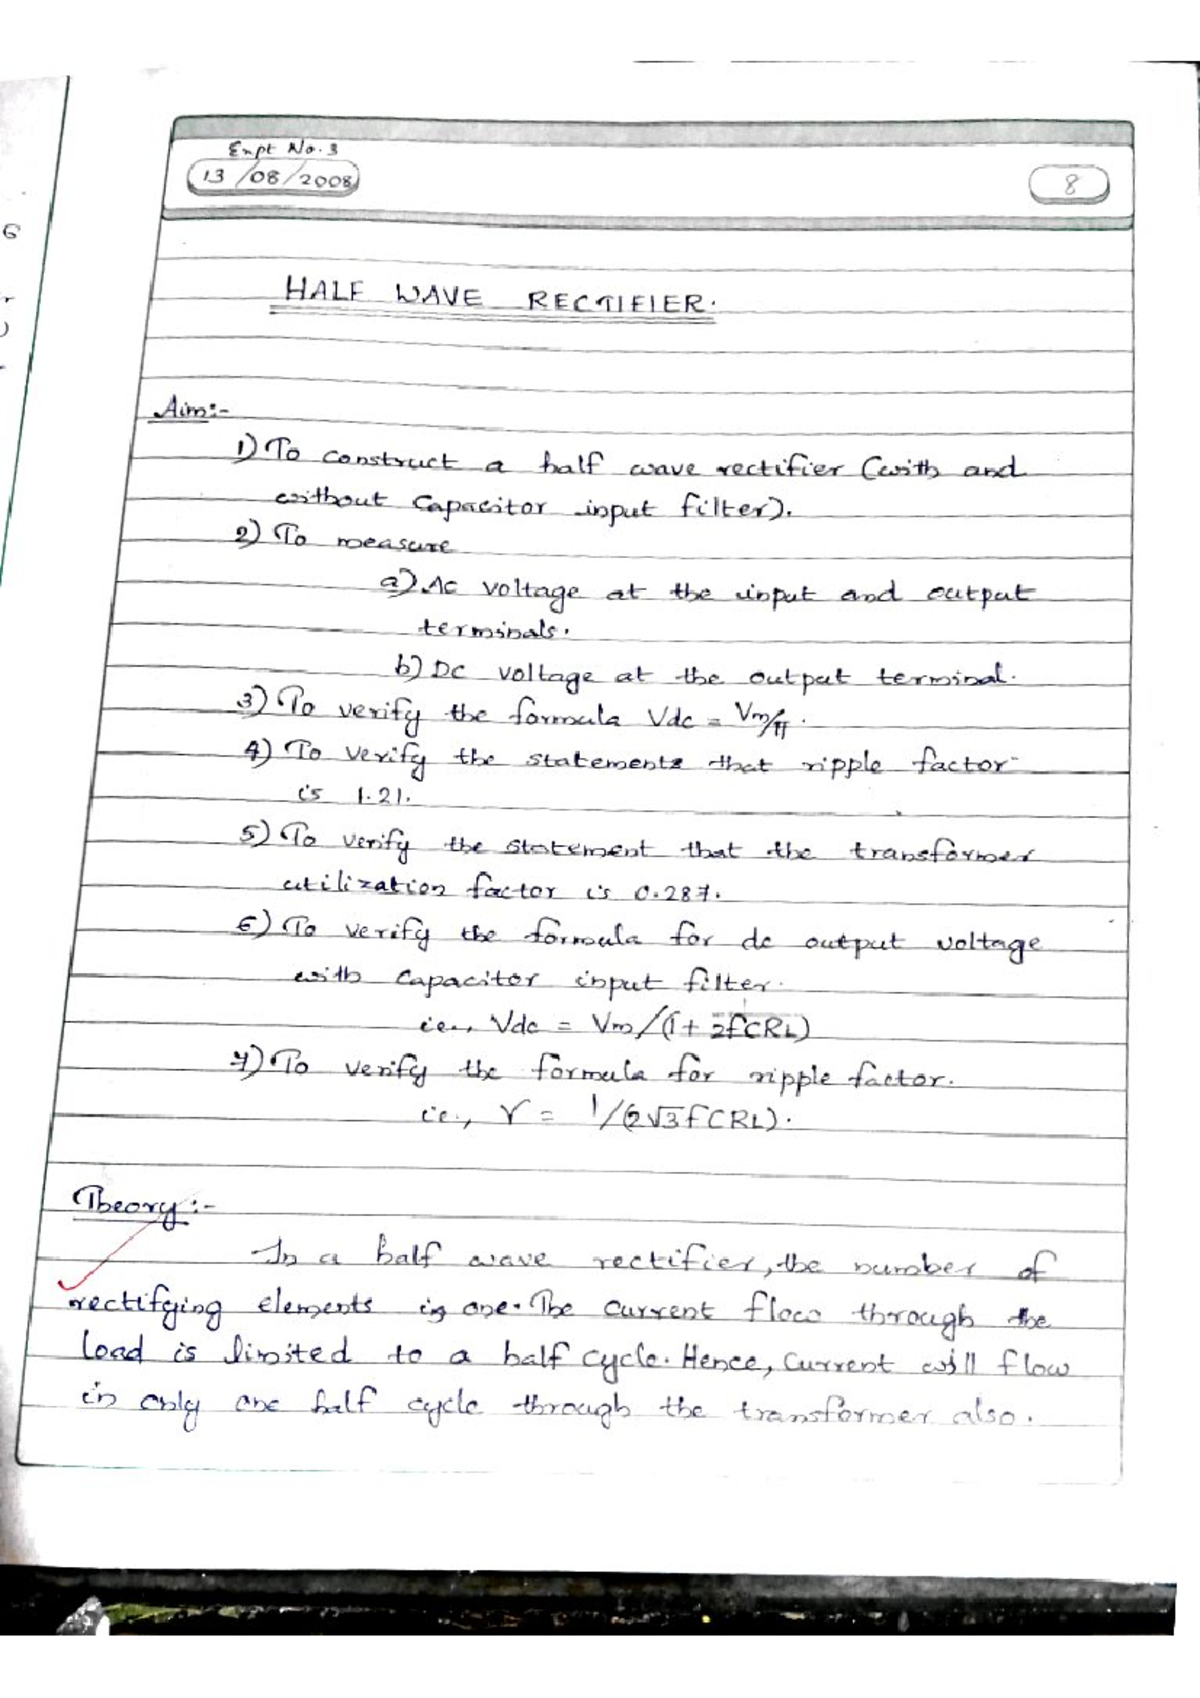 Expt No. 3
13/08/2008
8
6
HALF WAVE RECTIFIER.
Aim:-
1) To construct a half wave rectifier (with and
without Capacitor input filter).
2) To measure
a) AC voltage at the input and output
terminals.
b) DC voltage at the output terminal.
3) To verify the formula Vdc = Vm/π.
4) To verify the statements that ripple factor
is 1.21.
5) To verify the statement that the transformer
utilization factor is 0.287.
6) To verify the formula for dc output voltage
with capacitor input filter.
i.e., Vdc = Vm/(1 + 1/2fCRL)
7) To verify the formula for ripple factor.
i.e., r = 1/(2√3fCRL).
Theory:-
In a half wave rectifier, the number of
rectifying elements is one. The current flow through the
load is limited to a half cycle. Hence, current will flow
in only one half cycle through the transformer also.